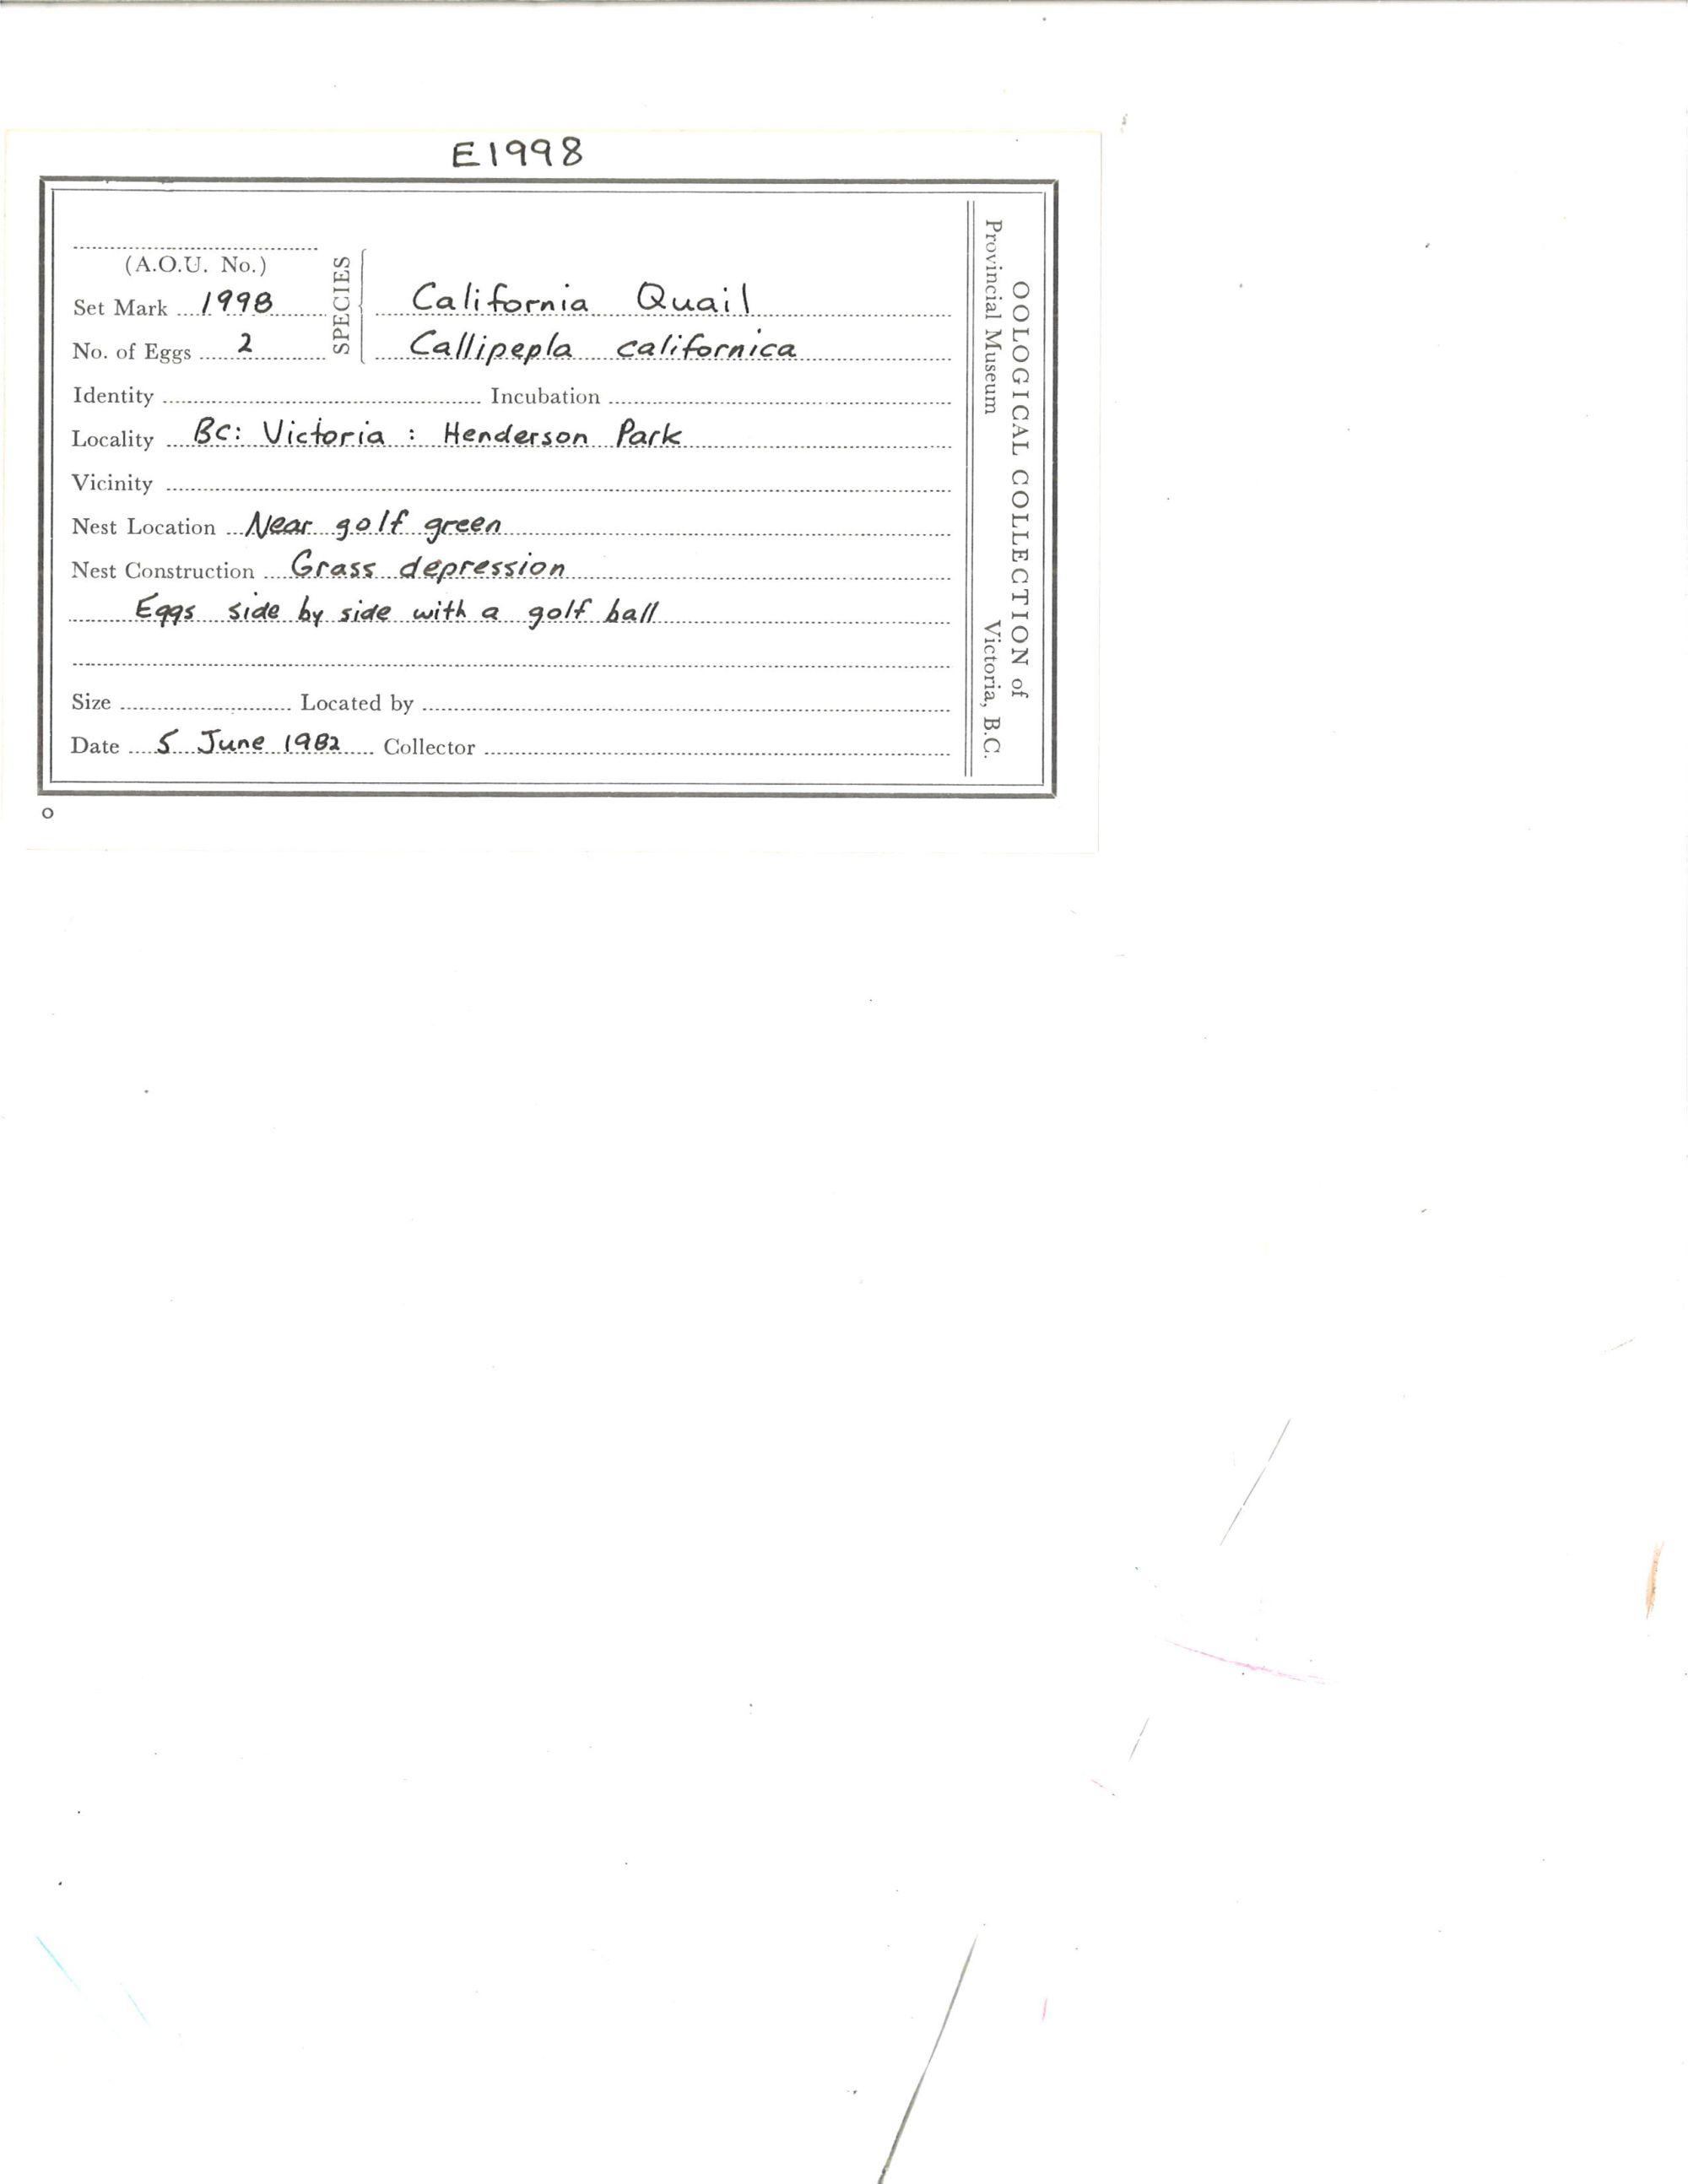 E1998
(A.O.U. No.)
SPECIES
Set Mark 1998
California Quail
No. of Eggs 2
Callipepla californica
Identity Incubation
Locality BC: Victoria : Henderson Park
Vicinity
Nest Location Near golf green
Nest Construction Grass depression
Eggs side by side with a golf ball
Size Located by
Date 5 June 1982 Collector
OOLOGICAL COLLECTION of
Provincial Museum Victoria, B.C.
O